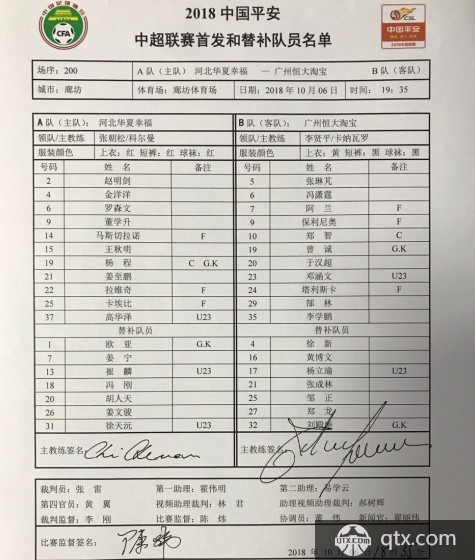 2018 中国平安
中超联赛首发和替补队员名单
中国平安
CFA
CSL
场序：200 A 队（主队） 河北华夏幸福 — 广州恒大淘宝 B 队（客队）
城市：廊坊 体育场：廊坊体育场 日期：2018 年 10 月 06 日 时间：19：35
A 队（主队）： 河北华夏幸福 B 队（客队）： 广州恒大淘宝
领队/主教练 张朝松/科尔曼 领队/主教练 李贤平/卡纳瓦罗
服装颜色 上衣：红 短裤：红 球袜：红 服装颜色 上衣：黄 短裤：黑 球袜：黑
号码 姓 名 备注 号码 姓 名 备注
2 赵明剑 5 张琳芃
4 金洋洋 6 冯潇霆
6 罗森文 7 阿兰 F
9 董学升 9 保利尼奥 F
14 马斯切拉诺 F 10 郑 智 C
15 王秋明 19 曾 诚 G.K
19 杨 程 C G.K 20 于汉超
21 姜至鹏 23 邓涵文 U23
22 拉维奇 F 24 塔利斯卡 F
25 卡埃比 F 29 郜 林
37 高华泽 U23 35 李学鹏
替补队员 替补队员
1 欧 亚 G.K 4 徐 新
7 姜 宁 16 黄博文
13 崔 麟 U23 17 杨立瑜 U23
18 冯 刚 21 张成林
20 胡人天 25 邹 正
26 姜文骏 27 郑 龙
31 徐天沅 U23 32 刘殿座 G.K
主教练签名 主教练签名
裁判员：张 雷 第一助理：霍伟明 第二助理：易学云
第四官员：黄 翼 视频助理裁判：林 君 助理视频助理裁判：郝树辉
裁判监督：李 刚 比赛监督：陈 炜 协调员：董 伟 新闻官：翟丽伟
比赛监督签名
2018 年 10 月
qtx.com